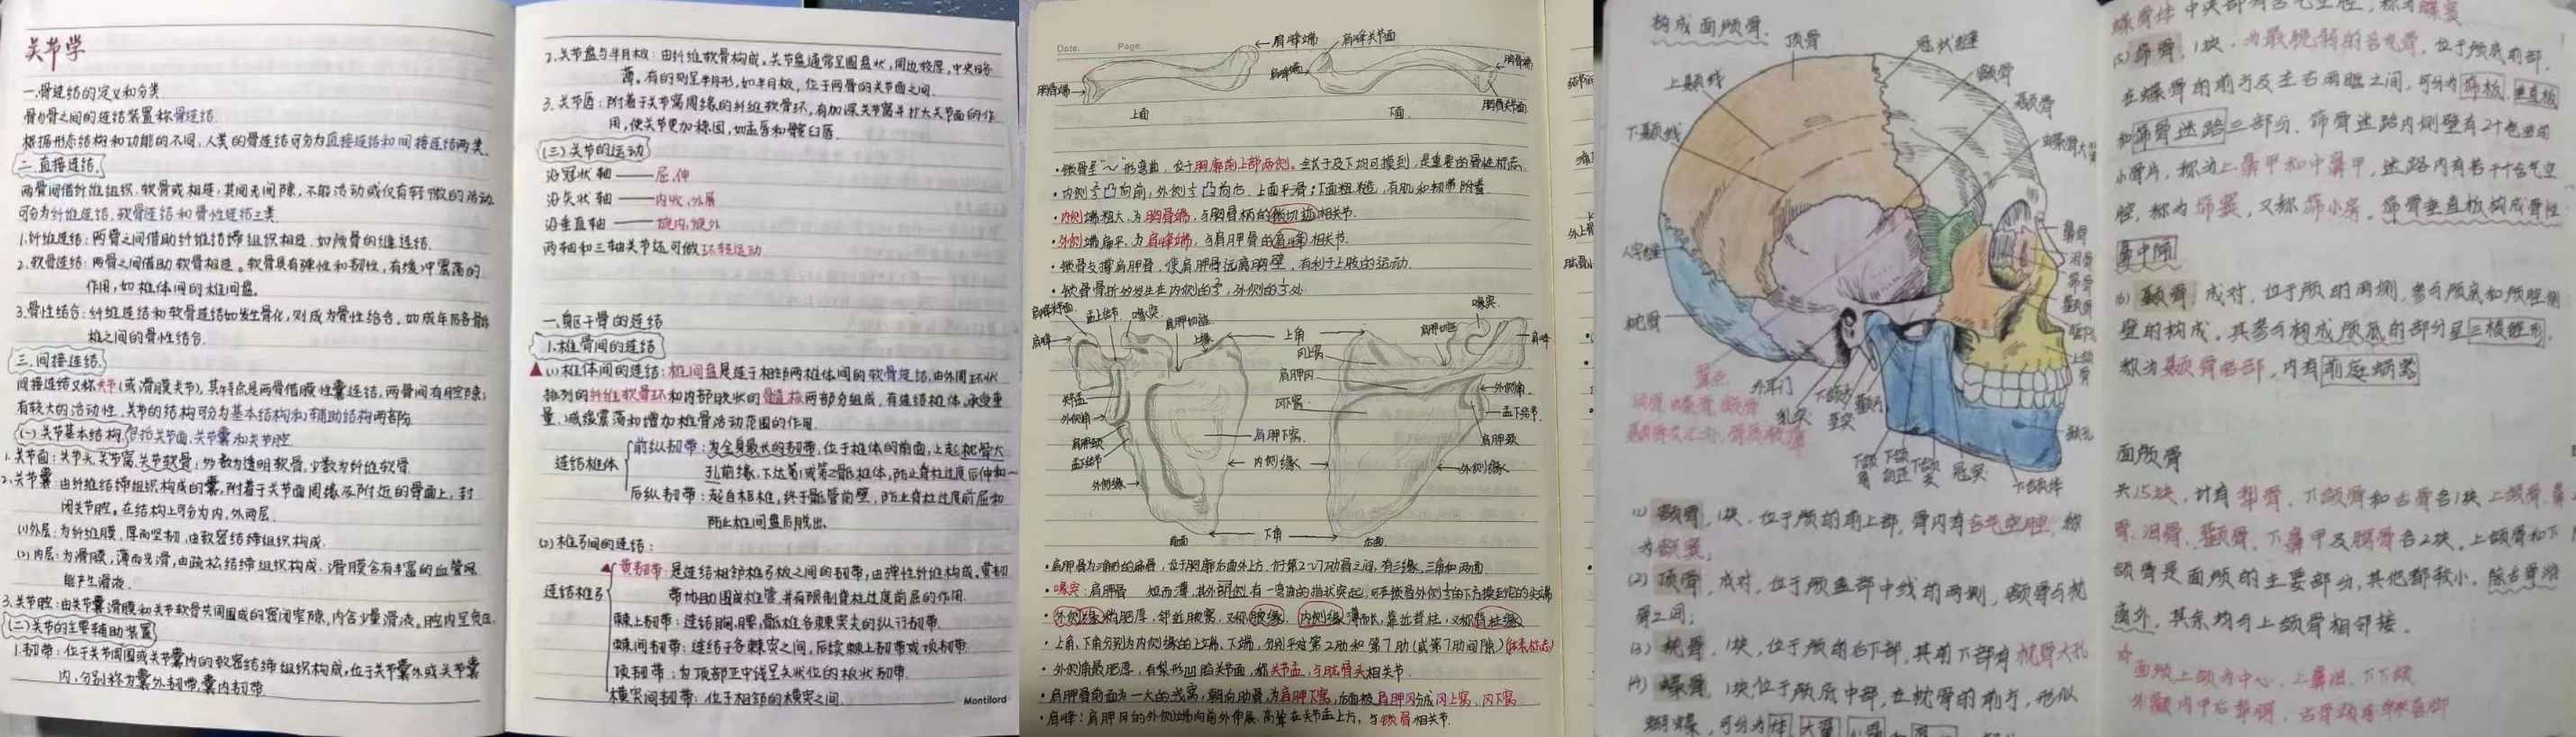 关节学
一.骨连结的定义和分类
骨与骨之间的连结装置称骨连结.
根据形态结构和功能的不同,人类的骨连结可分为直接连结和间接连结两类.
二.直接连结.
两骨间借纤维组织.软骨或相连,其间无间隙,不能活动或仅有轻微的活动
可分为纤维连结,软骨连结和骨性连结三类.
1.纤维连结:两骨之间借助纤维结缔组织相连.如颅骨的缝连结.
2.软骨连结:两骨之间借助软骨相连。软骨具有弹性和韧性,有缓冲震荡的
作用,如椎体间的椎间盘。
3.骨性结合:纤维连结和软骨连结如发生骨化,则成为骨性结合.如成年后各骶
椎之间的骨性结合.
三.间接连结.
间接连结又称关节(或滑膜关节),其特点是两骨借膜性囊连结,两骨间有腔隙;
有较大的活动性.关节的结构可分为基本结构和辅助结构两部份
(一)关节基本结构,包括关节面,关节囊和关节腔
1.关节面:关节头,关节窝.关节软骨:多数为透明软骨,少数为纤维软骨
2.关节囊:由纤维结缔组织构成的囊,附着于关节面周缘及附近的骨面上,封
闭关节腔。在结构上可分为内,外两层.
(1)外层:为纤维膜,厚而坚韧,由致密结缔组织构成.
(2)内层:为滑膜,薄而光滑,由疏松结缔组织构成.滑膜含有丰富的血管网
能产生滑液.
3.关节腔:由关节囊滑膜和关节软骨共同围成的密闭窄隙,内含少量滑液。腔内呈负压.
(二)关节的主要辅助装置
1.韧带:位于关节周围或关节囊内的致密结缔组织构成,位于关节囊外或关节囊
内,分别称为囊外韧带,囊内韧带
2.关节盘与半月板:由纤维软骨构成。关节盘通常呈圆盘状,周边较厚,中央略
薄。有的则呈半月形,如半月板,位于两骨的关节面之间.
3.关节唇:附着于关节窝周缘的纤维软骨环,有加深关节窝并扩大关节面的作
用,使关节更加稳固,如盂唇和髋臼唇.
(三)关节的运动
沿冠状轴——屈,伸
沿矢状轴——内收,外展
沿垂直轴——旋内,旋外
两轴和三轴关节还可做环转运动
一.躯干骨的连结
1.椎骨间的连结
▲(1)椎体间的连结:椎间盘是连于相邻两椎体间的软骨连结,由外周环状
排列的纤维软骨环和内部胶状的髓核两部分组成,有连结椎体,承受重
量,减缓震荡和增加椎骨活动范围的作用.
连结椎体
前纵韧带:为全身最长的韧带,位于椎体的前面,上起枕骨大
孔前缘,下达第1或第2骶椎体,防止脊柱过度后伸和
后纵韧带:起自枢椎,终于骶管前壁,防止脊柱过度前屈和
防止椎间盘后脱出.
(2)椎弓间的连结:
连结椎弓
▲黄韧带:是连结相邻椎弓板之间的韧带,由弹性纤维构成.黄韧
带协助围成椎管,并有限制脊柱过度前屈的作用.
棘上韧带:连结胸,腰,骶椎各棘突尖的纵行韧带.
棘间韧带:连结于各棘突之间,后续棘上韧带或项韧带.
项韧带:为顶部正中线呈矢状位的板状韧带.
横突间韧带:位于相邻的横突之间.
Montilord
Date. Page.
肩峰端
肩峰关节面
胸骨端
肩峰端
胸骨端
胸骨关节面
上面
下面
·锁骨呈"~"形弯曲,位于胸廓前上部两侧。全长于皮下均可摸到,是重要的骨性标志.
·内侧⅔凸向前,外侧⅓凸向后,上面平滑;下面粗糙,有肌和韧带附着
·内侧端粗大,为胸骨端,与胸骨柄的锁切迹相关节.
·外侧端扁平,为肩峰端,与肩胛骨的肩峰相关节.
·锁骨支撑肩胛骨,使肩胛骨远离胸壁,有利于上肢的运动.
肩峰
盂上结节
喙突
肩胛切迹
上缘
上角
肩胛切迹
喙突
肩峰
冈上窝
肩胛冈
冈下窝
外侧角
盂下结节
外侧角
肩胛颈
盂下结节
肩胛下窝
肩胛颈
内侧缘
外侧缘
外侧缘
下角
前面
后面
·外侧缘稍肥厚,邻近腋窝,又称腋缘.内侧缘薄而长,靠近脊柱,又称脊柱缘
·上角,下角分别为内侧缘的上端,下端,分别平对第2肋和第7肋(或第7肋间隙)(体表标志)
·外侧角最肥厚,有梨形凹陷关节面,称关节盂,与肱骨头相关节.
·肩胛骨前面为一大的浅窝,朝向肋骨,为肩胛下窝,后面被肩胛冈分成冈上窝,冈下窝
·肩峰:肩胛冈的外侧端向前外伸展,高耸在关节盂上方,与锁骨相关节.
构成面颅骨.
顶骨
冠状缝
上颞线
额骨
下颞线
颞骨
蝶骨大翼
人字缝
枕骨
鼻骨
泪骨
筛骨
颧骨
上颌骨
翼点
外耳门
乳突
茎突
冠突
颏孔
下颌体
(1)额骨,1块.位于颅的前上部,骨内有含气空腔,称
为额窦;
(2)顶骨,成对,位于颅盖部中线的两侧,额骨与枕
骨之间;
(3)枕骨,1块,位于颅的后下部,其前下部有枕骨大孔
(4)蝶骨,1块,位于颅底中部,在枕骨的前方,形似
(5)筛骨,1块,为最脆弱的含气骨.位于颅底前部.
在蝶骨的前方及左右两眶之间,可分为筛板,垂直板
和筛骨迷路三部分,筛骨迷路内侧壁有2个卷曲的
小骨片,称为上鼻甲和中鼻甲,迷路内有若干含气空
腔,称为筛窦,又称筛小房。筛骨垂直板构成骨性
鼻中隔
(6)颞骨,成对,位于颅的两侧,参与颅底和颅腔侧
壁的构成,其参与构成颅底的部分呈三棱锥形.
称为颞骨岩部,内有前庭蜗器
面颅骨
共15块,计有犁骨、下颌骨和舌骨各1块,上颌骨、鼻
骨、泪骨、颧骨、下鼻甲及腭骨各2块,上颌骨和下
颌骨是面颅的主要部分,其他都较小,除舌骨游
离外,其余均与上颌骨相邻接。
面颅上颌为中心,上鼻泪,下下颌